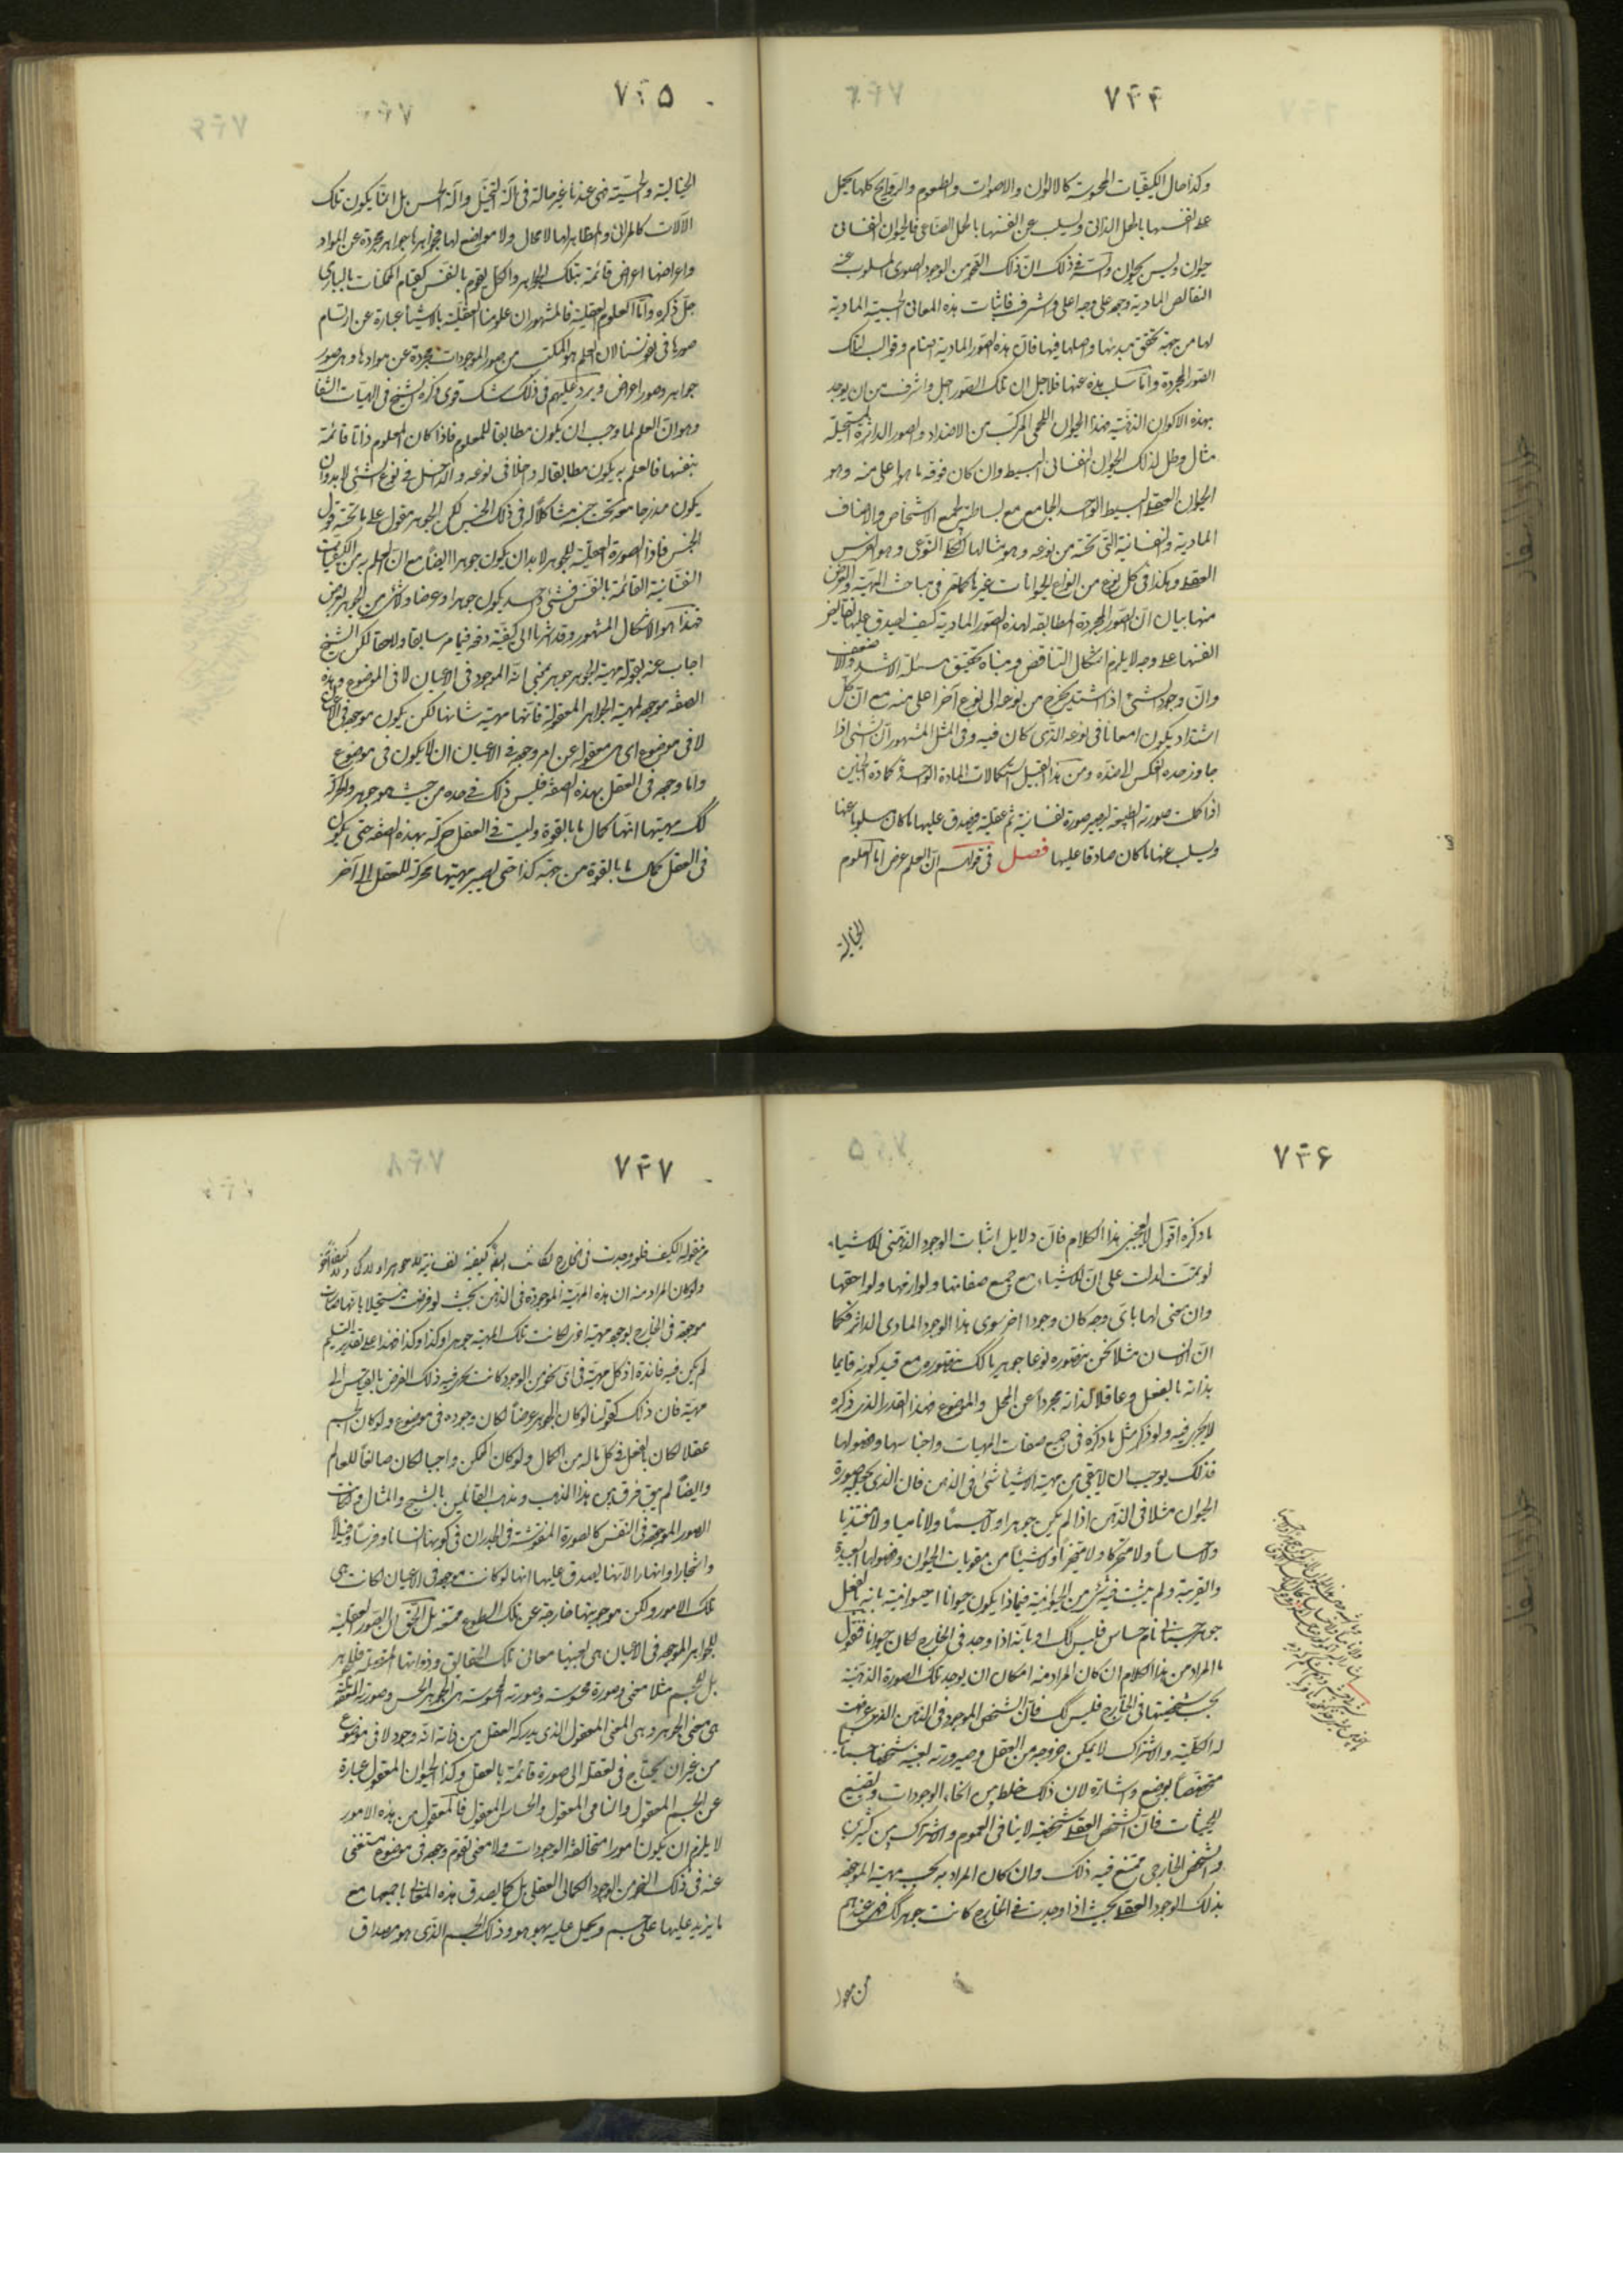 ٧٣٤
وكذا حال الكيفيات المحسوسة كالالوان والاصوات والطعوم والروايح كلها يحمل
على انفسها بالحمل الذاتى ويسلب عن انفسها بالحمل الصناعى فالحيوان النفسانى
حيوان وليس بحيوان والسر فى ذلك ان ذلك النحو من الوجود الصورى المسلوب عنه
النقائص المادية وجد على وجه اعلى واشرف فاثبات هذه المعانى الحسية المادية
لها من جهة تحقق مبدئها واصلها فيها فان هذه الصور المادية اصنام وقوالب لتلك
الصور المجردة واما سلب هذه عنها فلاجل ان تلك الصور اجل واشرف من ان يوجد
بهذه الاكوان الدنية فهذا الحيوان اللحمى المركب من الاضداد والصور الداثرة المستحيلة
مثال وظل لذلك الحيوان النفسانى البسيط وان كان فوقه ما هو اعلى منه وهو
الحيوان العقلى البسيط الواحد الجامع مع بساطته لجميع الاشخاص والاصناف
المادية والنفسانية التى تحته من نوعه وهو مثالها الكلى النوعى وهو الفرس
العقلى وهكذا فى كل نوع من انواع الحيوانات وغيرها كما مر فى مباحث المهية والغرض
منها بيان ان الصور المجردة المطابقة لهذه الصور المادية كيف يصدق عليها نقايض
انفسها على وجه لا يلزم اشكال التناقض ومبناه تحقيق مسئلة الاشد والاضعف
وان وجود الشىء اذا اشتد يخرج من نوعه الى نوع آخر اعلى منه مع ان كل
اشتداد يكون امعانا فى نوعه الذى كان فيه وفى المثل المشهور ان الشىء اذا
جاوز حده انعكس الى ضده ومن هذا القبيل استكمالات المادة الواحدة كمادة الجنين
اذا كملت صورته الطبيعية يصير صورة نفسانية ثم عقلية فيصدق عليها ما كان مسلوبا عنها
ويسلب عنها ما كان صادقا عليها فصل فى قولهم ان العلم عرض اما العلوم
الخيالية
٧٣٥
الخيالية والحسية فهى عندنا غير حالة فى آلة التخيل وآلة الحس بل انما يكون تلك
الآلات كالمرائى والمظاهر لها لا محال ولا مواضع لها فجواهرها جواهر مجردة عن المواد
واعراضها اعراض قائمة بتلك الجواهر والكل يقوم بالنفس كقيام الممكنات بالبارى
جل ذكره واما العلوم العقلية فالمشهور ان علومنا العقلية بالاشياء عبارة عن ارتسام
صورها فى نفوسنا لان العلم هو المكتسب من صور الموجودات مجردة عن موادها وهى صور
جواهر وصور اعراض ويرد عليهم فى ذلك شك قوى ذكره الشيخ فى الهيات الشفا
وهو ان العلم لما وجب ان يكون مطابقا للمعلوم فاذا كان المعلوم ذاتا قائمة
بنفسها فالعلم به يكون مطابقا له وداخلا فى نوعه والداخل فى نوع الشىء لا بد وان
يكون مندرجا معه تحت جنسه مشاكلا له فى ذلك الجنس لكن الجوهر مقول على ما تحته قول
الجنس فاذا الصورة العقلية للجوهر لا بد ان يكون جوهرا ايضا مع ان العلم به من الكيفيات
النفسانية القائمة بالنفس فشىء واحد يكون جوهرا وعرضا ولا شىء من الجوهر بعرض
فهذا هو الاشكال المشهور وقد اشرنا الى كيفية دفعه فيما مر سابقا ولاحقا لكن الشيخ
اجاب عنه بقوله مهية الجوهر جوهر بمعنى انه الموجود فى الاعيان لا فى الموضوع وهذه
الصفة موجودة لمهية الجواهر المعقولة فانها مهية شانها لكن يكون موجودة فى الاعيان
لا فى موضوع اى هى معقولة عن امر وجوده فى الاعيان ان لا يكون فى موضوع
واما وجوده فى العقل بهذه الصفة فليس ذلك فى حده من حيث هو جوهر والحركة
كك مهيتها انها كمال ما بالقوة وليست فى العقل حركة بهذه الصفة حتى يكون
فى العقل كمال ما بالقوة من جهة كذا حتى يصير مهيتها محركة للعقل الى آخر
٧٣٦
ما ذكره اقول لا يعجبنى هذا الكلام فان دلايل اثبات الوجود الذهنى للاشياء
لو تمت لدلت على ان للاشياء مع جميع صفاتها ولوازمها ولواحقها
وان سخى لها باى وجه كان وجودا اخر سوى هذا الوجود المادى الداثر فكما
ان الانسان مثلا نحن نتصوره نوعا جوهريا كك نتصوره مع قيد كونه قايما
بذاته بالفعل وعاقلا لذاته مجردا عن المحل والموضوع فهذا القدر الذى ذكره
لا يجرى فيه ولو ذكر مثل ما ذكره فى جميع صفات المهيات واجناسها وفصولها
فذلك يوجب ان لا يبقى من مهية الاشياء شىء فى الذهن فان الذى يحصل صورة
الحيوان مثلا فى الذهن اذا لم يكن جوهرا ولا جسما ولا ناميا ولا متغذيا
ولا حساسا ولا متحركا ولا متحيزا ولا شيئا من مقومات الحيوان وفصولها البعيدة
والقريبة ولم يثبت فيه شىء من الحيوانية فبماذا يكون حيوانا احيوانيته بانه بالفعل
جوهر جسمانى نام حساس فليس كك او بانه اذا وجد فى الخارج لكان حيوانا فنقول
ما المراد من هذا الكلام ان كان المراد منه امكان ان يوجد تلك الصورة الذهنية
بحسب شخصيتها فى الخارج فليس كك فان الشخص الموجود فى الذهن الذى عرضت
له الكلية والاشتراك لا يمكن خروجه من العقل وصيرورته بعينه شخصا جسمانيا
متخصصا بوضع واشارة لان ذلك خلط بين انحاء الوجودات وتضييع
للحيثيات فان الشخص العقلى شخصيته لا ينافى العموم والاشتراك بين كثيرين
والشخص الخارجى يمتنع فيه ذلك وان كان المراد به بحسب مهية الموجودة
بذلك الوجود العقلى بحيث اذا وجدت فى الخارج كانت جوهرا كك فهى عندهم
من مقولة
٧٣٧
من مقولة الكيف فلو وجدت فى الخارج لكانت ايضا كيفية نفسانية لا جوهرا
ولو كان المراد منه ان هذه المهية الموجودة فى الذهن بحيث لو فرضت مستحيلا بانها صارت
موجودة فى الخارج بوجود مهية اخرى لكانت تلك المهية جوهرا وكذا وكذا فهذا على تقدير التسليم
لم يكن فيه فائدة اذ كل مهية فى اى نحو من الوجود كانت يجرى فيه ذلك الفرض بالقياس الى
مهية فان ذلك كقولنا لو كان الجوهر عرضا لكان وجوده فى موضوع ولو كان الجسم
عقلا لكان بالفعل فى كل ما له من الكمال ولو كان الممكن واجبا لكان صانعا للعالم
وايضا لم يبق فرق بين هذا المذهب ومذهب القائلين بالشبح والمثال ولكانت
الصور الموجودة فى النفس كالصورة المنقوشة فى الجدران فى كونها انسانا وفرسا وفيلا
واشجارا وانهارا لانها يصدق عليها انها لو كانت موجودة فى الاعيان لكانت هى
تلك الامور ولكن موجوديتها خارجة عن تلك السطوح ممتنعة بل الحق ان الصور العقلية
للجواهر الموجودة فى الاعيان هى بعينها معانى تلك الحقائق وذواتها المتحصلة فللجوهر
بل للجسم مثلا معنى وصورة محسوسة وصورته المحسوسة هى الجوهر الحسى وصورته المعقولة
هى معنى الجوهر وهى المعنى المعقول الذى يدركه العقل من ذاته انه وجود لا فى موضوع
من غير ان يحتاج فى تعقله الى صورة قائمة بالعقل وكذا الحيوان المعقول عبارة
عن الجسم المعقول والنامى المعقول والحساس المعقول فالمعقول من هذه الامور
لا يلزم ان يكون امورا متخالفة الوجودات ولا معنى تقوم وجوده فى موضوع مستغنى
عنه فى ذلك النحو من الوجود الكمالى العقلى بل كما يصدق هذه المعانى باجمعها مع
ما يزيد عليها على جسم ويحمل عليه بهو هو وذلك الجسم الذى هو مصداق